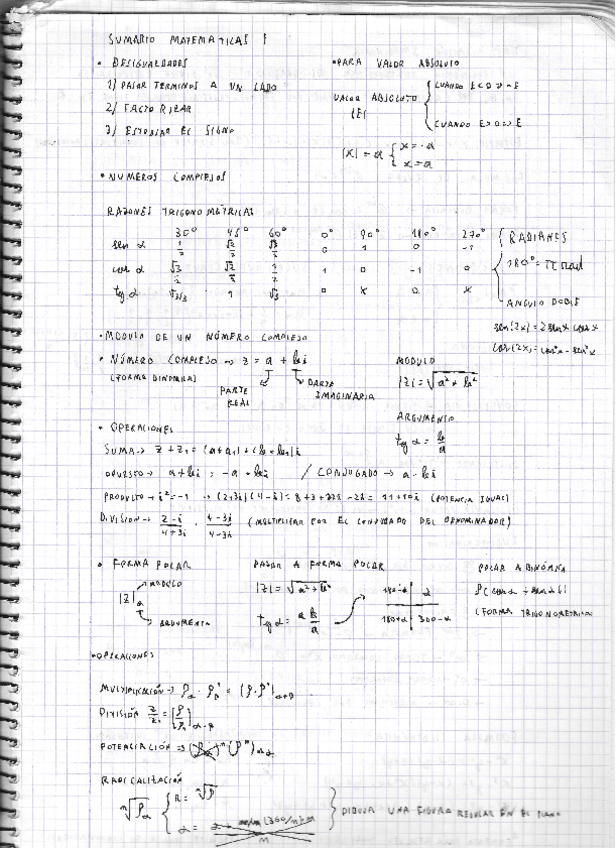 SUMARIO MATEMATICAS I
• DESIGUALDADES
1) PASAR TERMINOS A UN LADO
2) FACTORIZAR
3) ESTUDIAR EL SIGNO
• PARA VALOR ABSOLUTO
VALOR ABSOLUTO |E|
CUANDO E<0 => -E
CUANDO E>0 => E
|x| = a { x = -a
x = a
• NUMEROS COMPLEJOS
RAZONES TRIGONOMÉTRICAS
30° 45° 60° 0° 90° 180° 270°
sen α 1/2 √2/2 √3/2 0 1 0 -1
cos α √3/2 √2/2 1/2 1 0 -1 0
tg α √3/3 1 √3 0 X 0 X
RADIANES
180° = π rad
ANGULO DOBLE
sen(2x) = 2 senx cosx
cos(2x) = cos²x - sen²x
• MODULO DE UN NÚMERO COMPLEJO
• NÚMERO COMPLEJO → z = a + bi
(FORMA BINOMICA)
PARTE REAL
PARTE IMAGINARIA
MODULO
|z| = √a² + b²
ARGUMENTO
tg α = b/a
• OPERACIONES
SUMA → z + z₁ = (a+a₁) + (b+b₁)i
OPUESTO → a+bi = -a-bi / CONJUGADO → a-bi
PRODUCTO → i² = -1 → (2+3i)(4-i) = 8+3+12i-2i = 11+10i (POTENCIA IGUAL)
DIVISIÓN → 2-i/4+3i · 4-3i/4-3i (MULTIPLICAR POR EL CONJUGADO DEL DENOMINADOR)
• FORMA POLAR
MODULO
|z|α
ARGUMENTO
PASAR A FORMA POLAR
|z| = √a²+b²
tg α = b/a
180-α | α
180+α | 300-α
POLAR A BINÓMICA
(FORMA TRIGONOMETRICA)
• OPERACIONES
MULTIPLICACIÓN → ρα · ρ'β = (ρ·ρ')α+β
DIVISIÓN
POTENCIACIÓN
RADICALITACIÓN
ⁿ√ρα { R = ⁿ√ρ
α =
} DIBUJA UNA FIGURA REGULAR EN EL PLANO